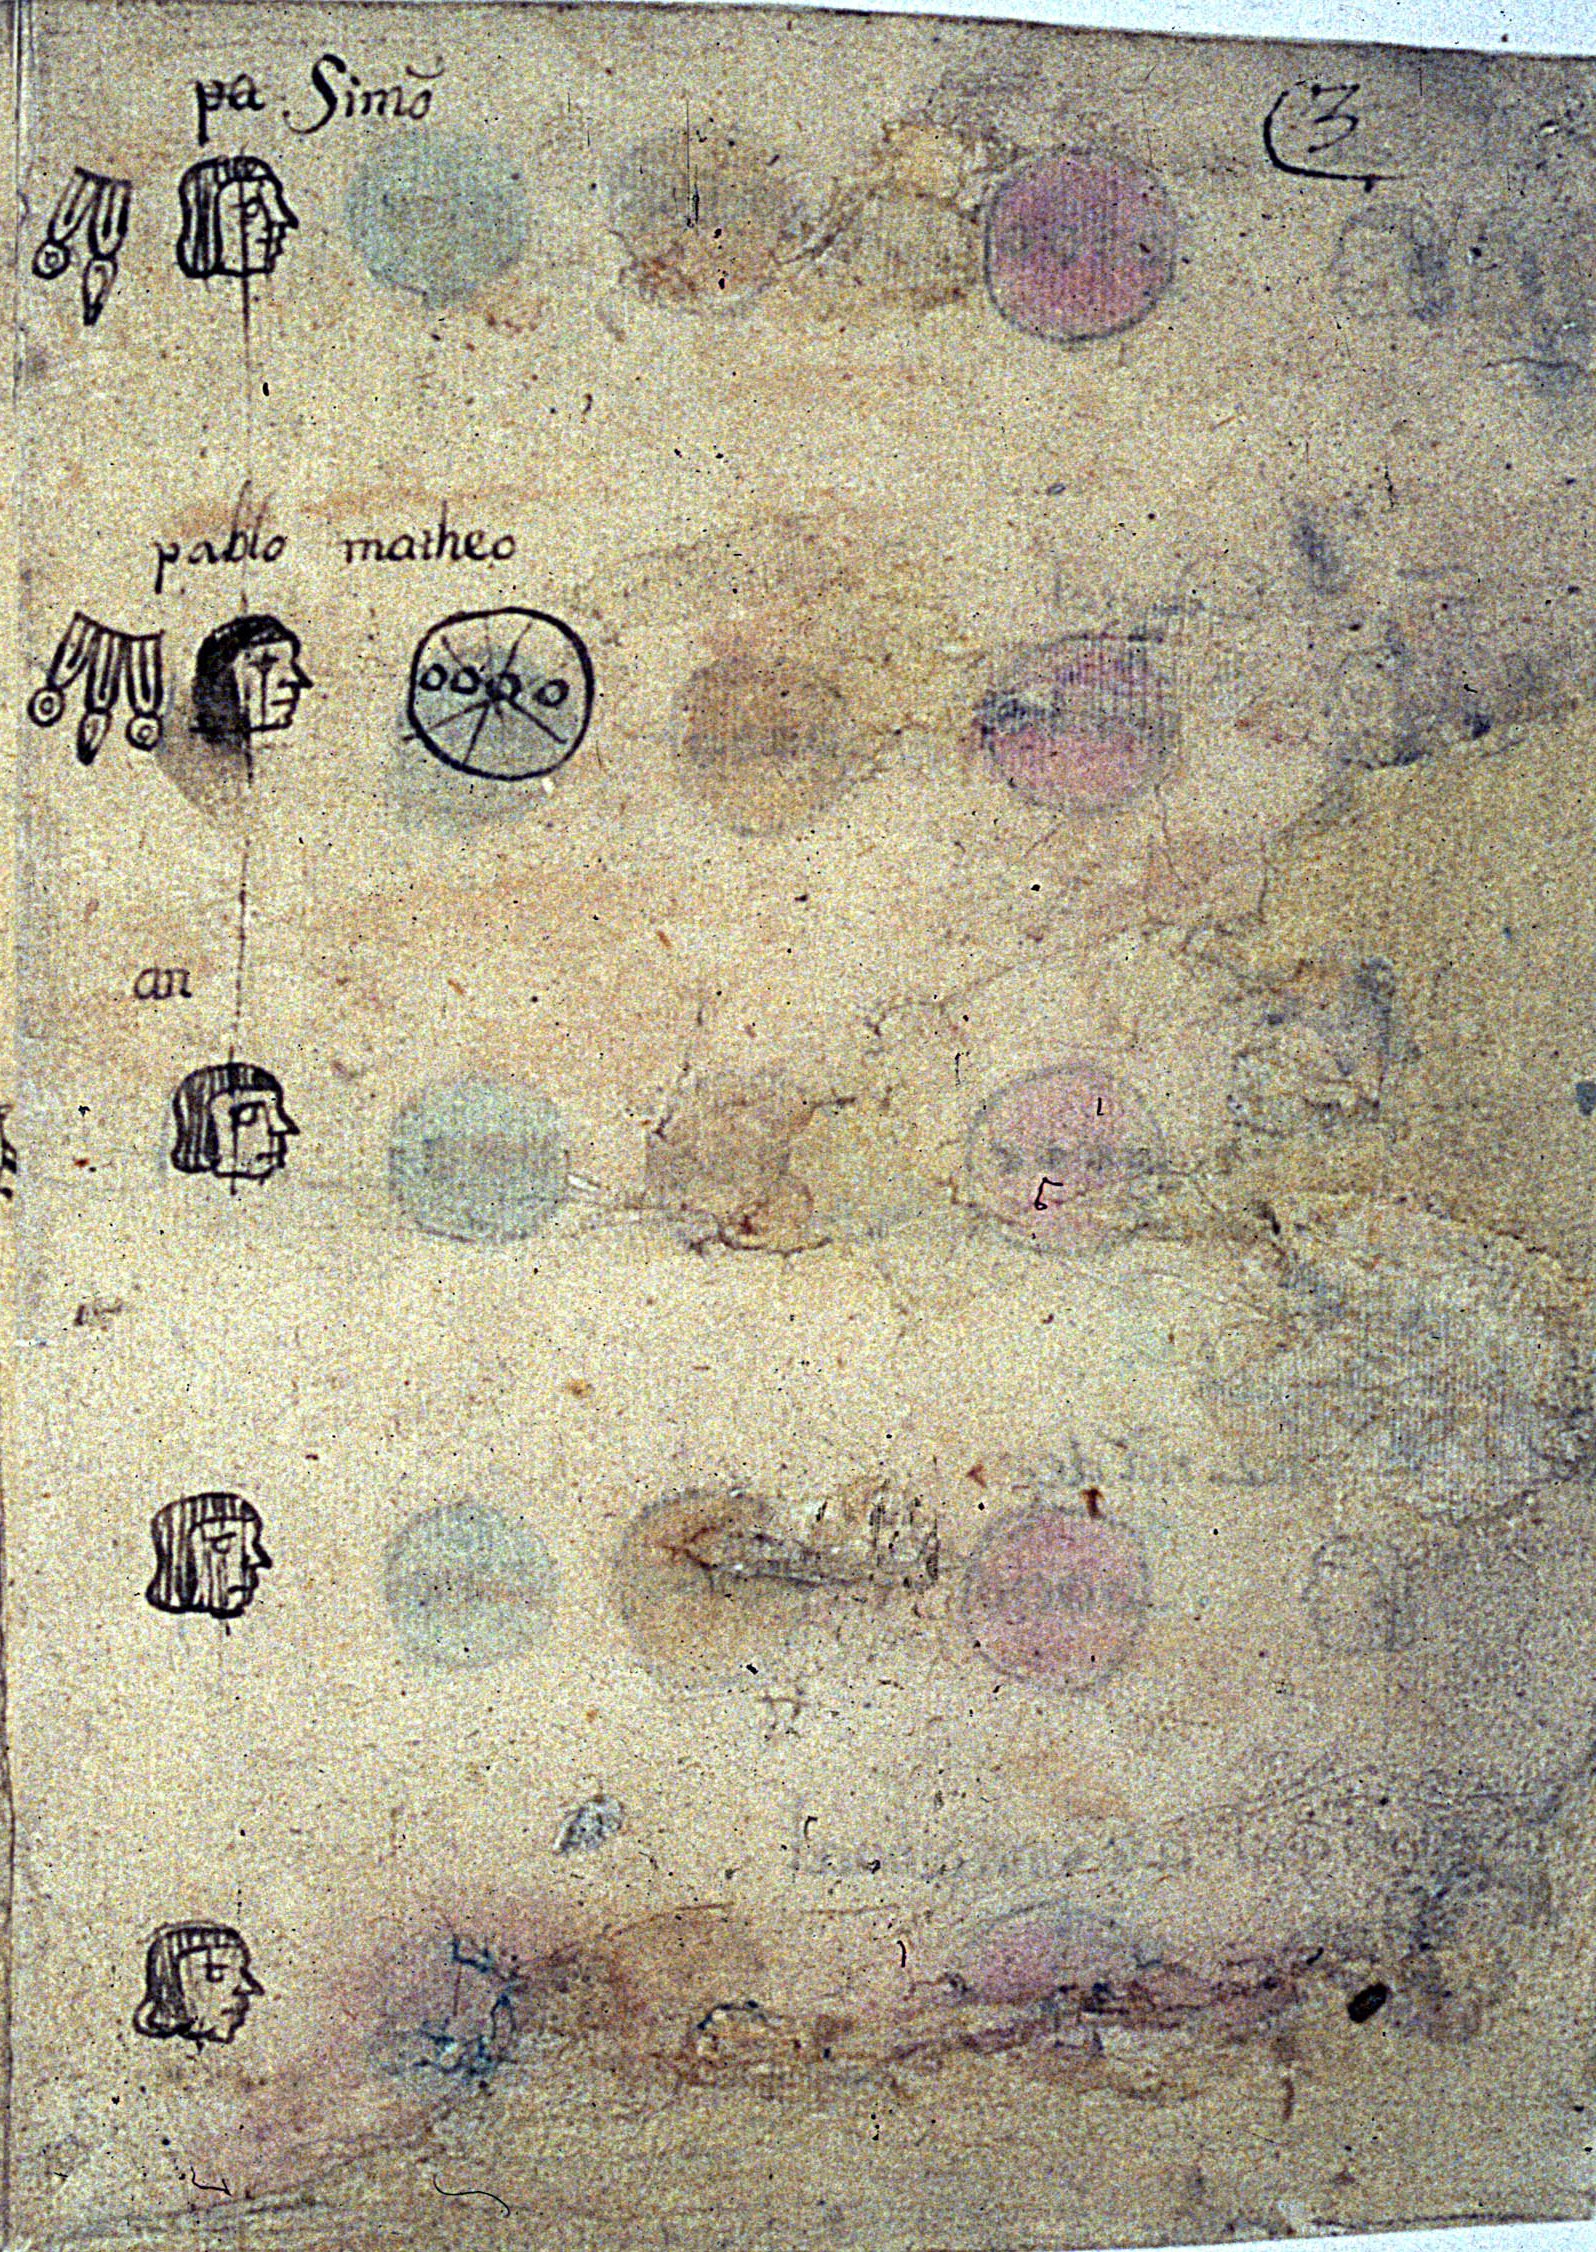 pa Simō
3
pablo matheo
an